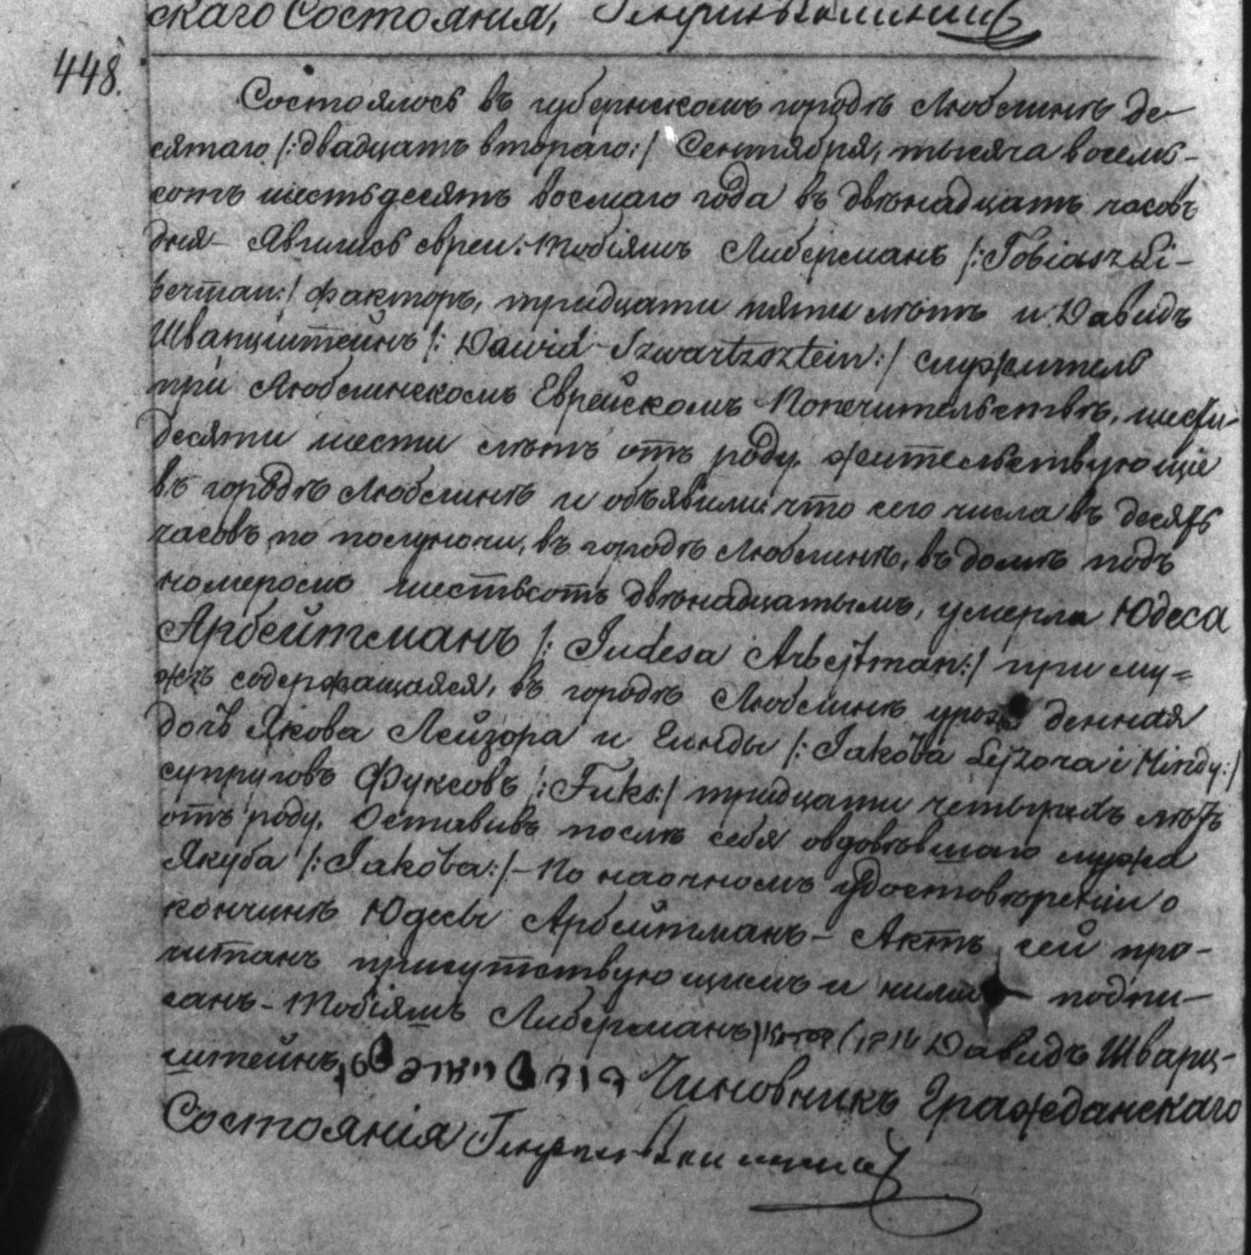 скаго Состоянія,
448.
Состоялось въ губернскомъ городѣ Люблинѣ де-
сятаго /:двадцать втораго:/ Сентября, тысяча восемь-
сотъ шестьдесятъ восмаго года въ двѣнадцать часовъ
дня – Явились евреи: Тобіяшъ Либерманъ /:Tobiasz Li-
berman:/ факторъ, тридцати пяти лѣтъ и Давидъ
Шварцштейнъ /: Dawid Szwartzsztein:/ служитель
при Люблинскомъ Еврейскомъ Попечительствѣ, шести-
десяти шести лѣтъ отъ роду, жительствующіе
въ городѣ Люблинѣ и объявили что сего числа въ десять
часовъ по полуночи, въ городѣ Люблинѣ, въ домѣ подъ
номеромъ шестьсотъ двѣнадцатымъ, умерла Юдеса
Арбейтманъ /: Judesa Arbejtman:/ при му-
жѣ содержащаяся, въ городѣ Люблинѣ урожденная
дочь Якова Лейзора и Гинды /:Jakóba Lejzora i Hindy:/
супруговъ Фуксовъ /:Fuks:/ тридцати четырехъ лѣтъ
отъ роду. Оставивъ послѣ себя овдовѣвшаго мужа
Якуба /:Jakóba:/ – По наочномъ удостовѣреніи о
кончинѣ Юдесы Арбейтманъ – Актъ сей про-
читанъ присутствующимъ и ними подпи-
санъ – Тобіяшъ Либерманъ Давидъ Шварц-
штейнъ Чиновникъ Гражданскаго
Состоянія